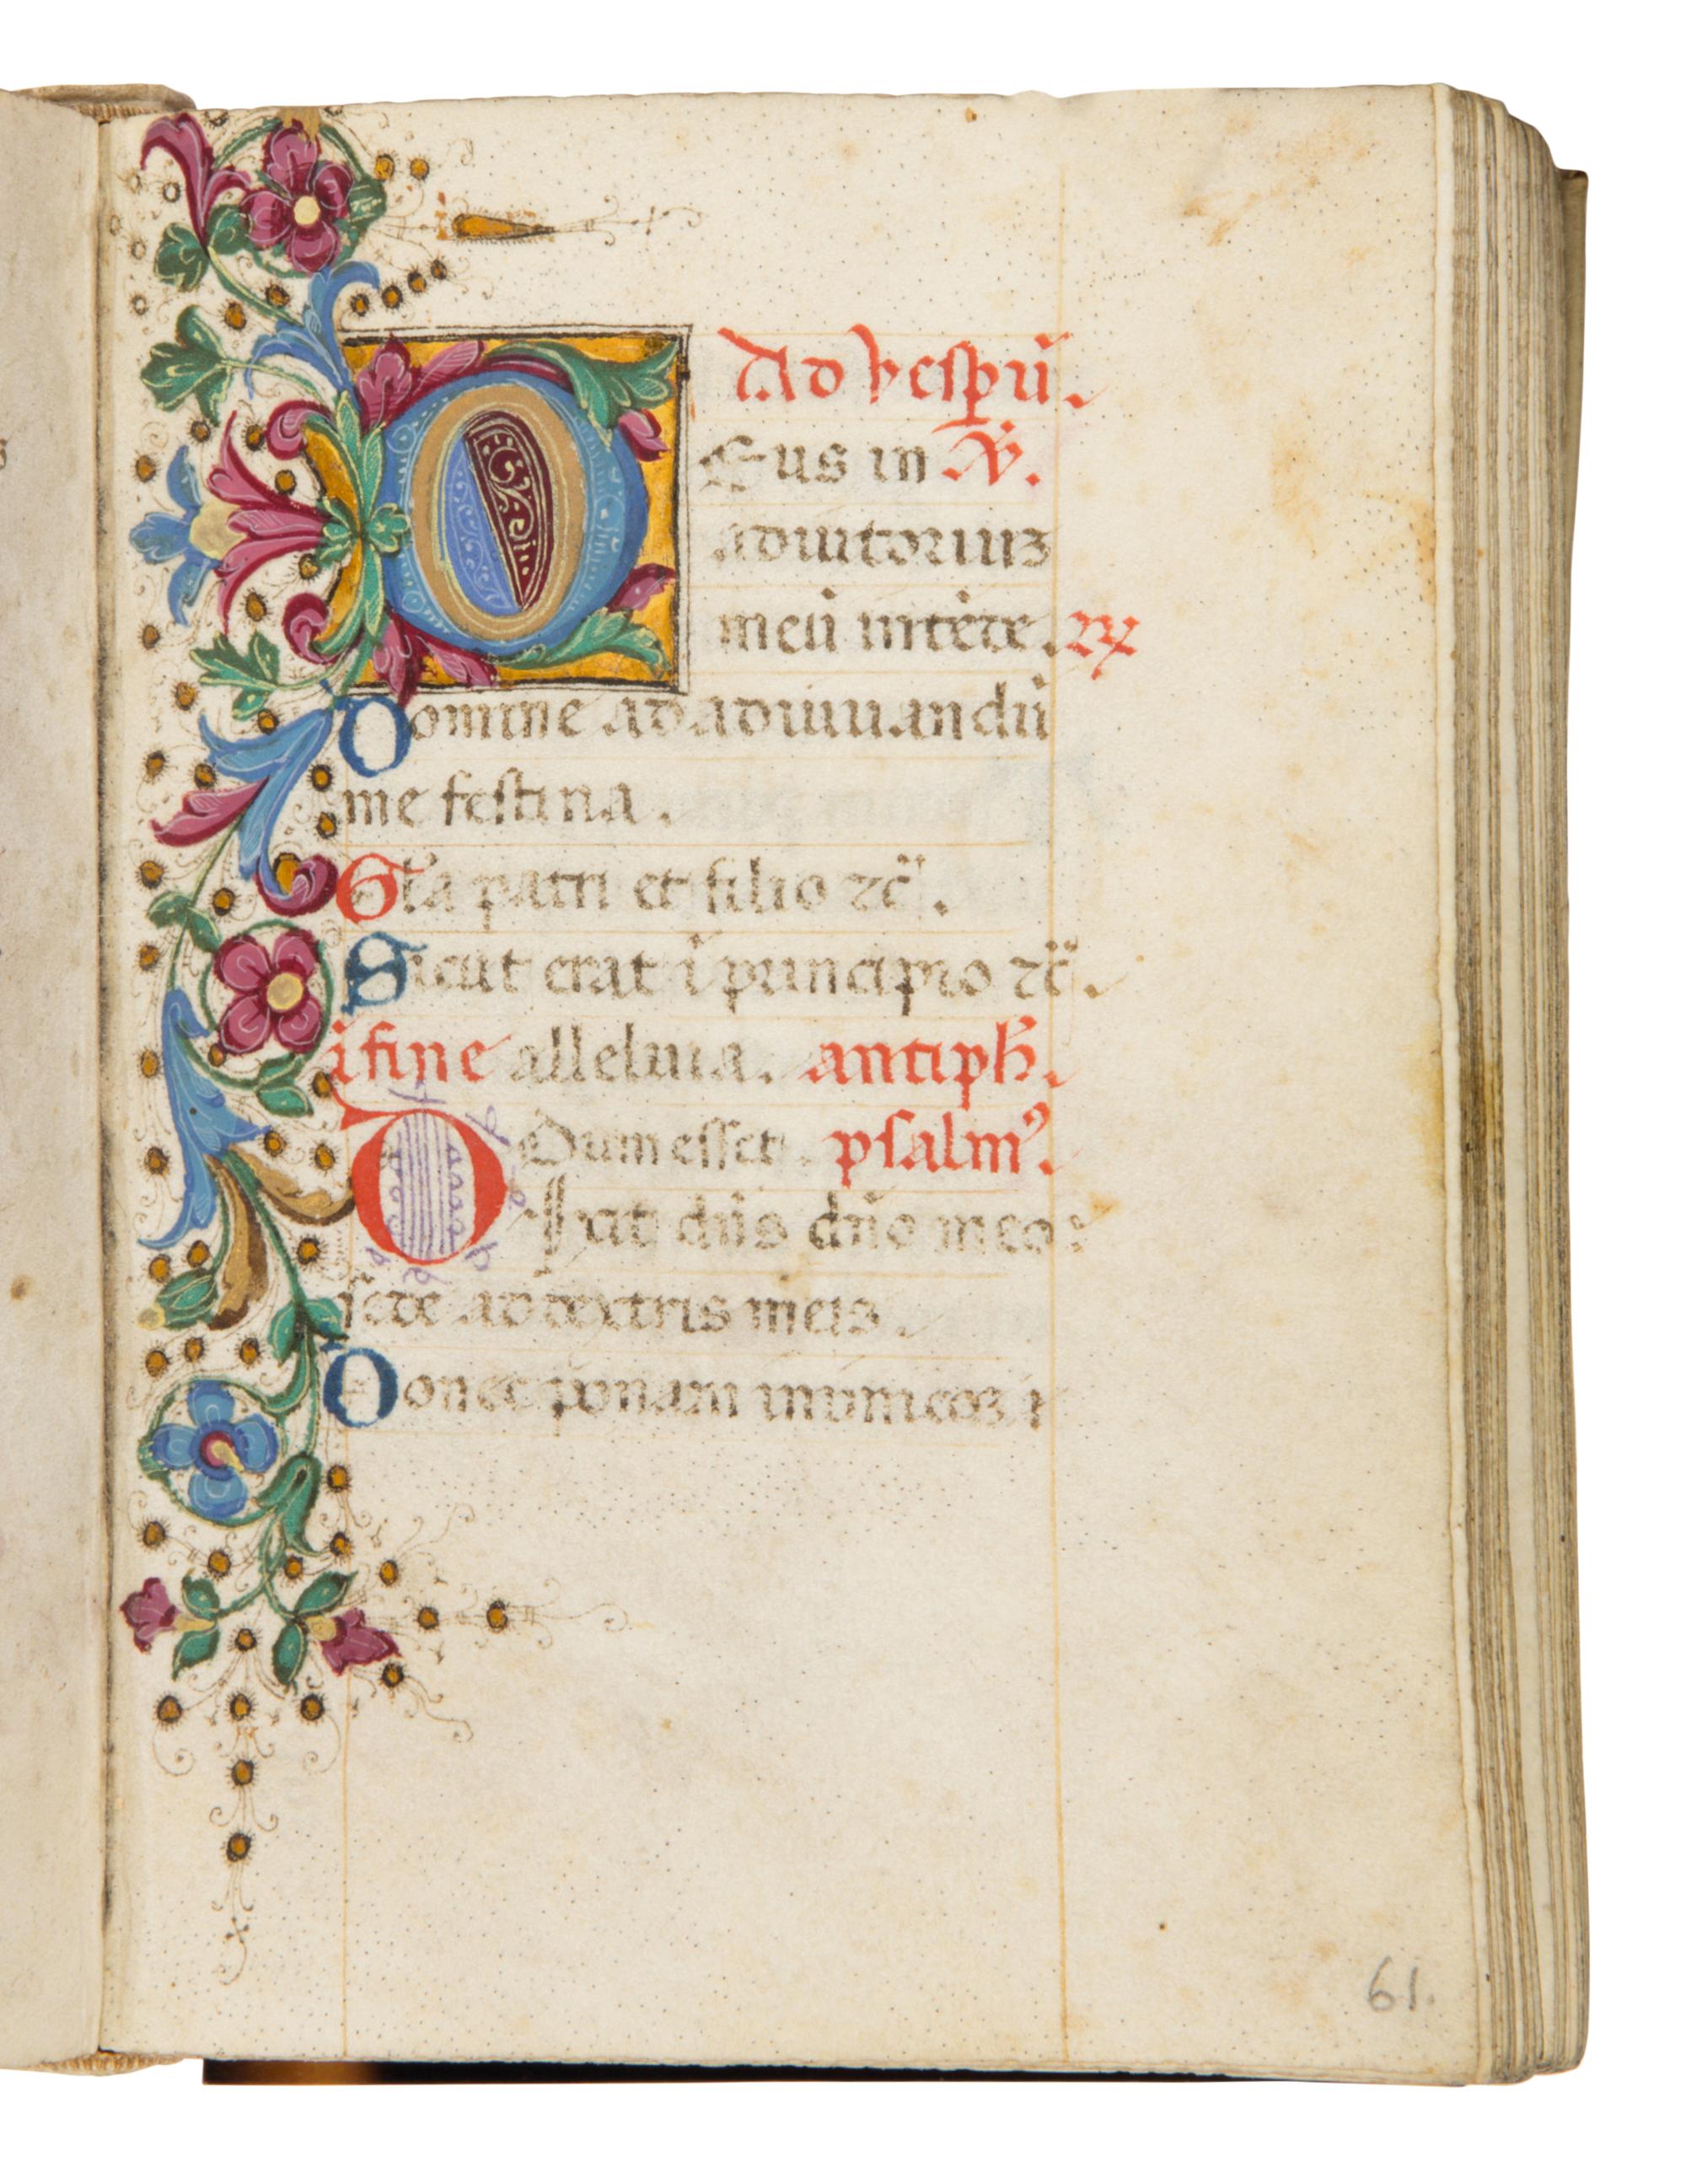 Ad vesꝑū.
DEus in ℣.
adiutoriuꝫ
meū intēde. ℞
Domine ad adiuuandū
me festina.
Gl̄a patri et filio ⁊c̈.
Sicut erat ī principio ⁊c̈.
ī fine alleluia. antiph̄.
Dum esset. psalmꝰ.
DIxit dn̄s dn̄o meo:
sede ad dextris meis.
Donec ponam inimicos
61.